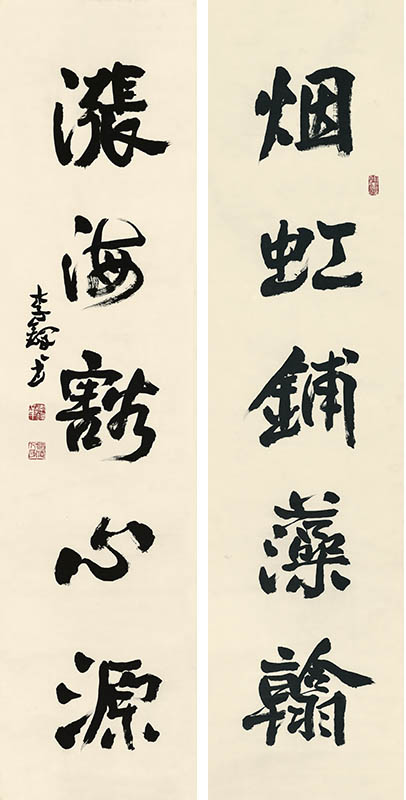 烟虹鋪藻翰
漲海豁心源
李鐸书